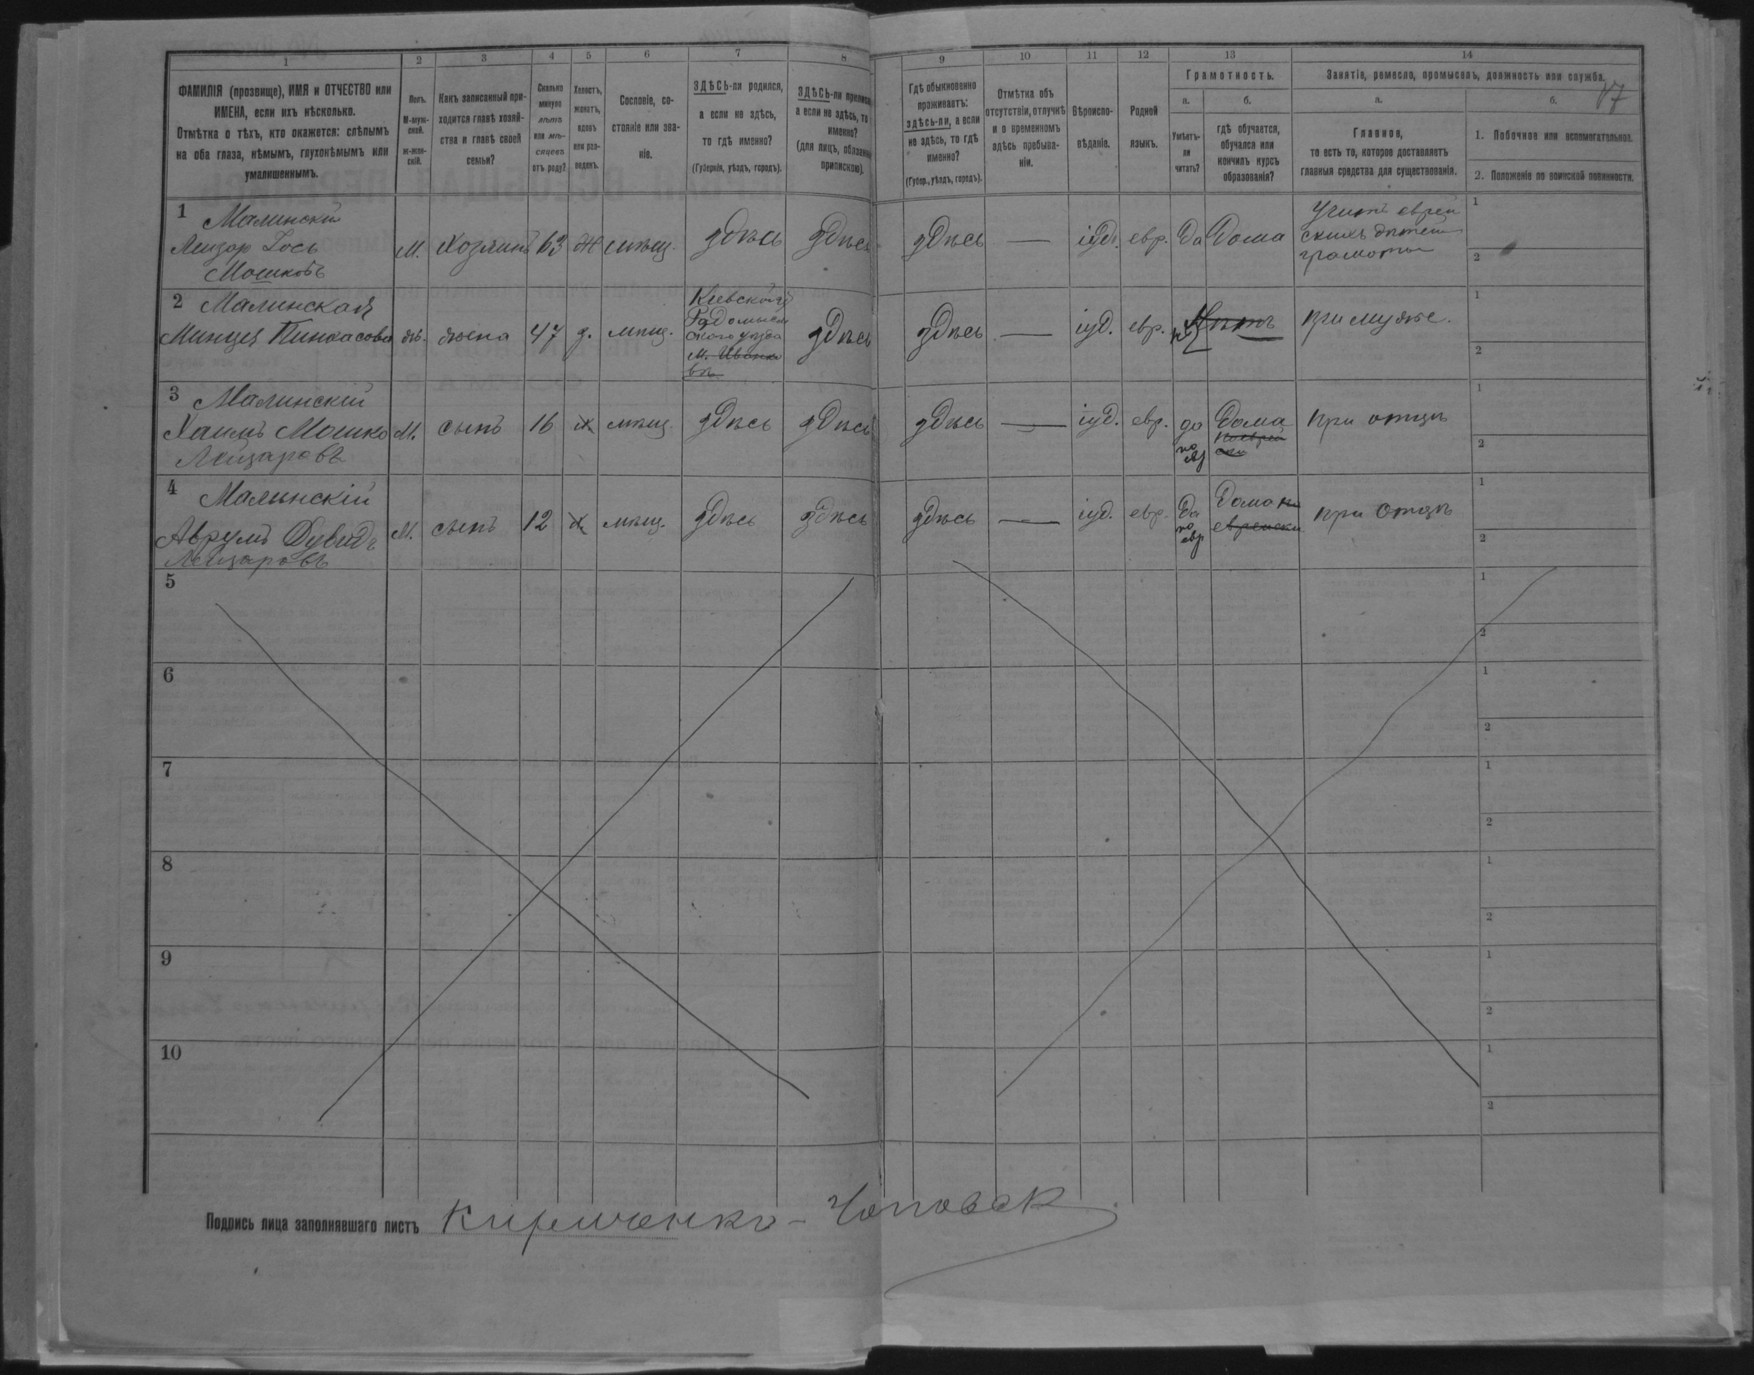 77
1 2 3 4 5 6 7 8 9 10 11 12 13 14
ФАМИЛІЯ (прозвище), ИМЯ и ОТЧЕСТВО или
ИМЕНА, если ихъ нѣсколько.
Отмѣтка о тѣхъ, кто окажется: слѣпымъ
на оба глаза, нѣмымъ, глухонѣмымъ или
умалишеннымъ.
Полъ.
М-муж-
ской.
Ж-жен-
скій.
Какъ записанный при-
ходится главѣ хозяй-
ства и главѣ своей
семьи?
Сколько
минуло
лѣтъ
или мѣ-
сяцевъ
отъ роду?
Холостъ,
женатъ,
вдовъ
или раз-
веденъ.
Сословіе, со-
стояніе или зва-
ніе.
ЗДѢСЬ-ли родился,
а если не здѣсь,
то гдѣ именно?
(Губернія, уѣздъ, городъ).
ЗДѢСЬ-ли приписанъ,
а если не здѣсь, то гдѣ
именно?
(для лицъ, обязанныхъ
припискою).
Гдѣ обыкновенно
проживаетъ:
здѣсь-ли, а если
не здѣсь, то гдѣ
именно?
(Губер., уѣздъ, городъ).
Отмѣтка объ
отсутствіи, отлучкѣ
и о временномъ
здѣсь пребыва-
ніи.
Вѣроиспо-
вѣданіе.
Родной
языкъ.
Грамотность.
а.
Умѣетъ-
ли
читать?
б.
гдѣ обучается,
обучался или
кончилъ курсъ
образованія?
Занятіе, ремесло, промыселъ, должность или служба.
а.
Главное,
то есть то, которое доставляетъ
главныя средства для существованія.
б.
1. Побочное или вспомогательное.
2. Положеніе по воинской повинности.
1 Малинскій
Лейзор Іось
Мошковъ
М. Хозяинъ 63 Ж мѣщ. здѣсь здѣсь здѣсь — іуд. евр. Да Дома
Учитъ еврей
скихъ дѣтей
грамоты
1
2
2 Малинская
Минця Пинхасова
жена 47 з. мѣщ.
Кіевской г
Радомысл
скаго уѣзда
м. Иванко
въ
здѣсь здѣсь — іуд. евр. Нѣтъ при мужѣ.
1
2
3 Малинскій
Хаимъ Мошко
Лейзаровъ
М. сынъ 16 х мѣщ. здѣсь здѣсь здѣсь — іуд. евр. да Дома при отцѣ
по
1
2
4 Малинскій
Аврумъ Дувидъ
Лейзаровъ
М. сынъ 12 х мѣщ. здѣсь здѣсь здѣсь — іуд. евр. Да Дома по при отцѣ
по еврейски
евр
1
2
5
1
2
6
1
2
7
1
2
8
1
2
9
1
2
10
1
2
Подпись лица заполнявшаго листъ